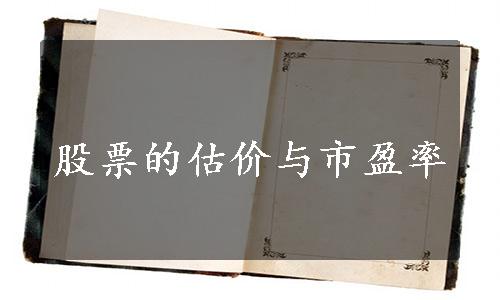 股票的估价与市盈率